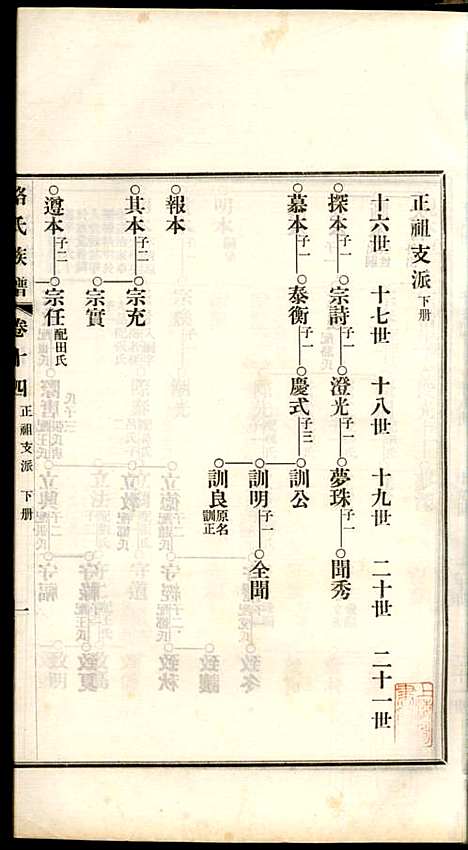 正祖支派 下册
十六世 十七世 十八世 十九世 二十世 二十一世
探本 子一 宗詩 子一 澄光 子一 夢珠 子一 聞秀
慕本 子一 泰衡 子一 慶式 子三 訓公
訓明 子一 全聞
訓良 原名訓正
報本
其本 子二 宗充
宗實
遵本 子二 宗任 配田氏
氏族譜 卷十四 正祖支派 下册 一